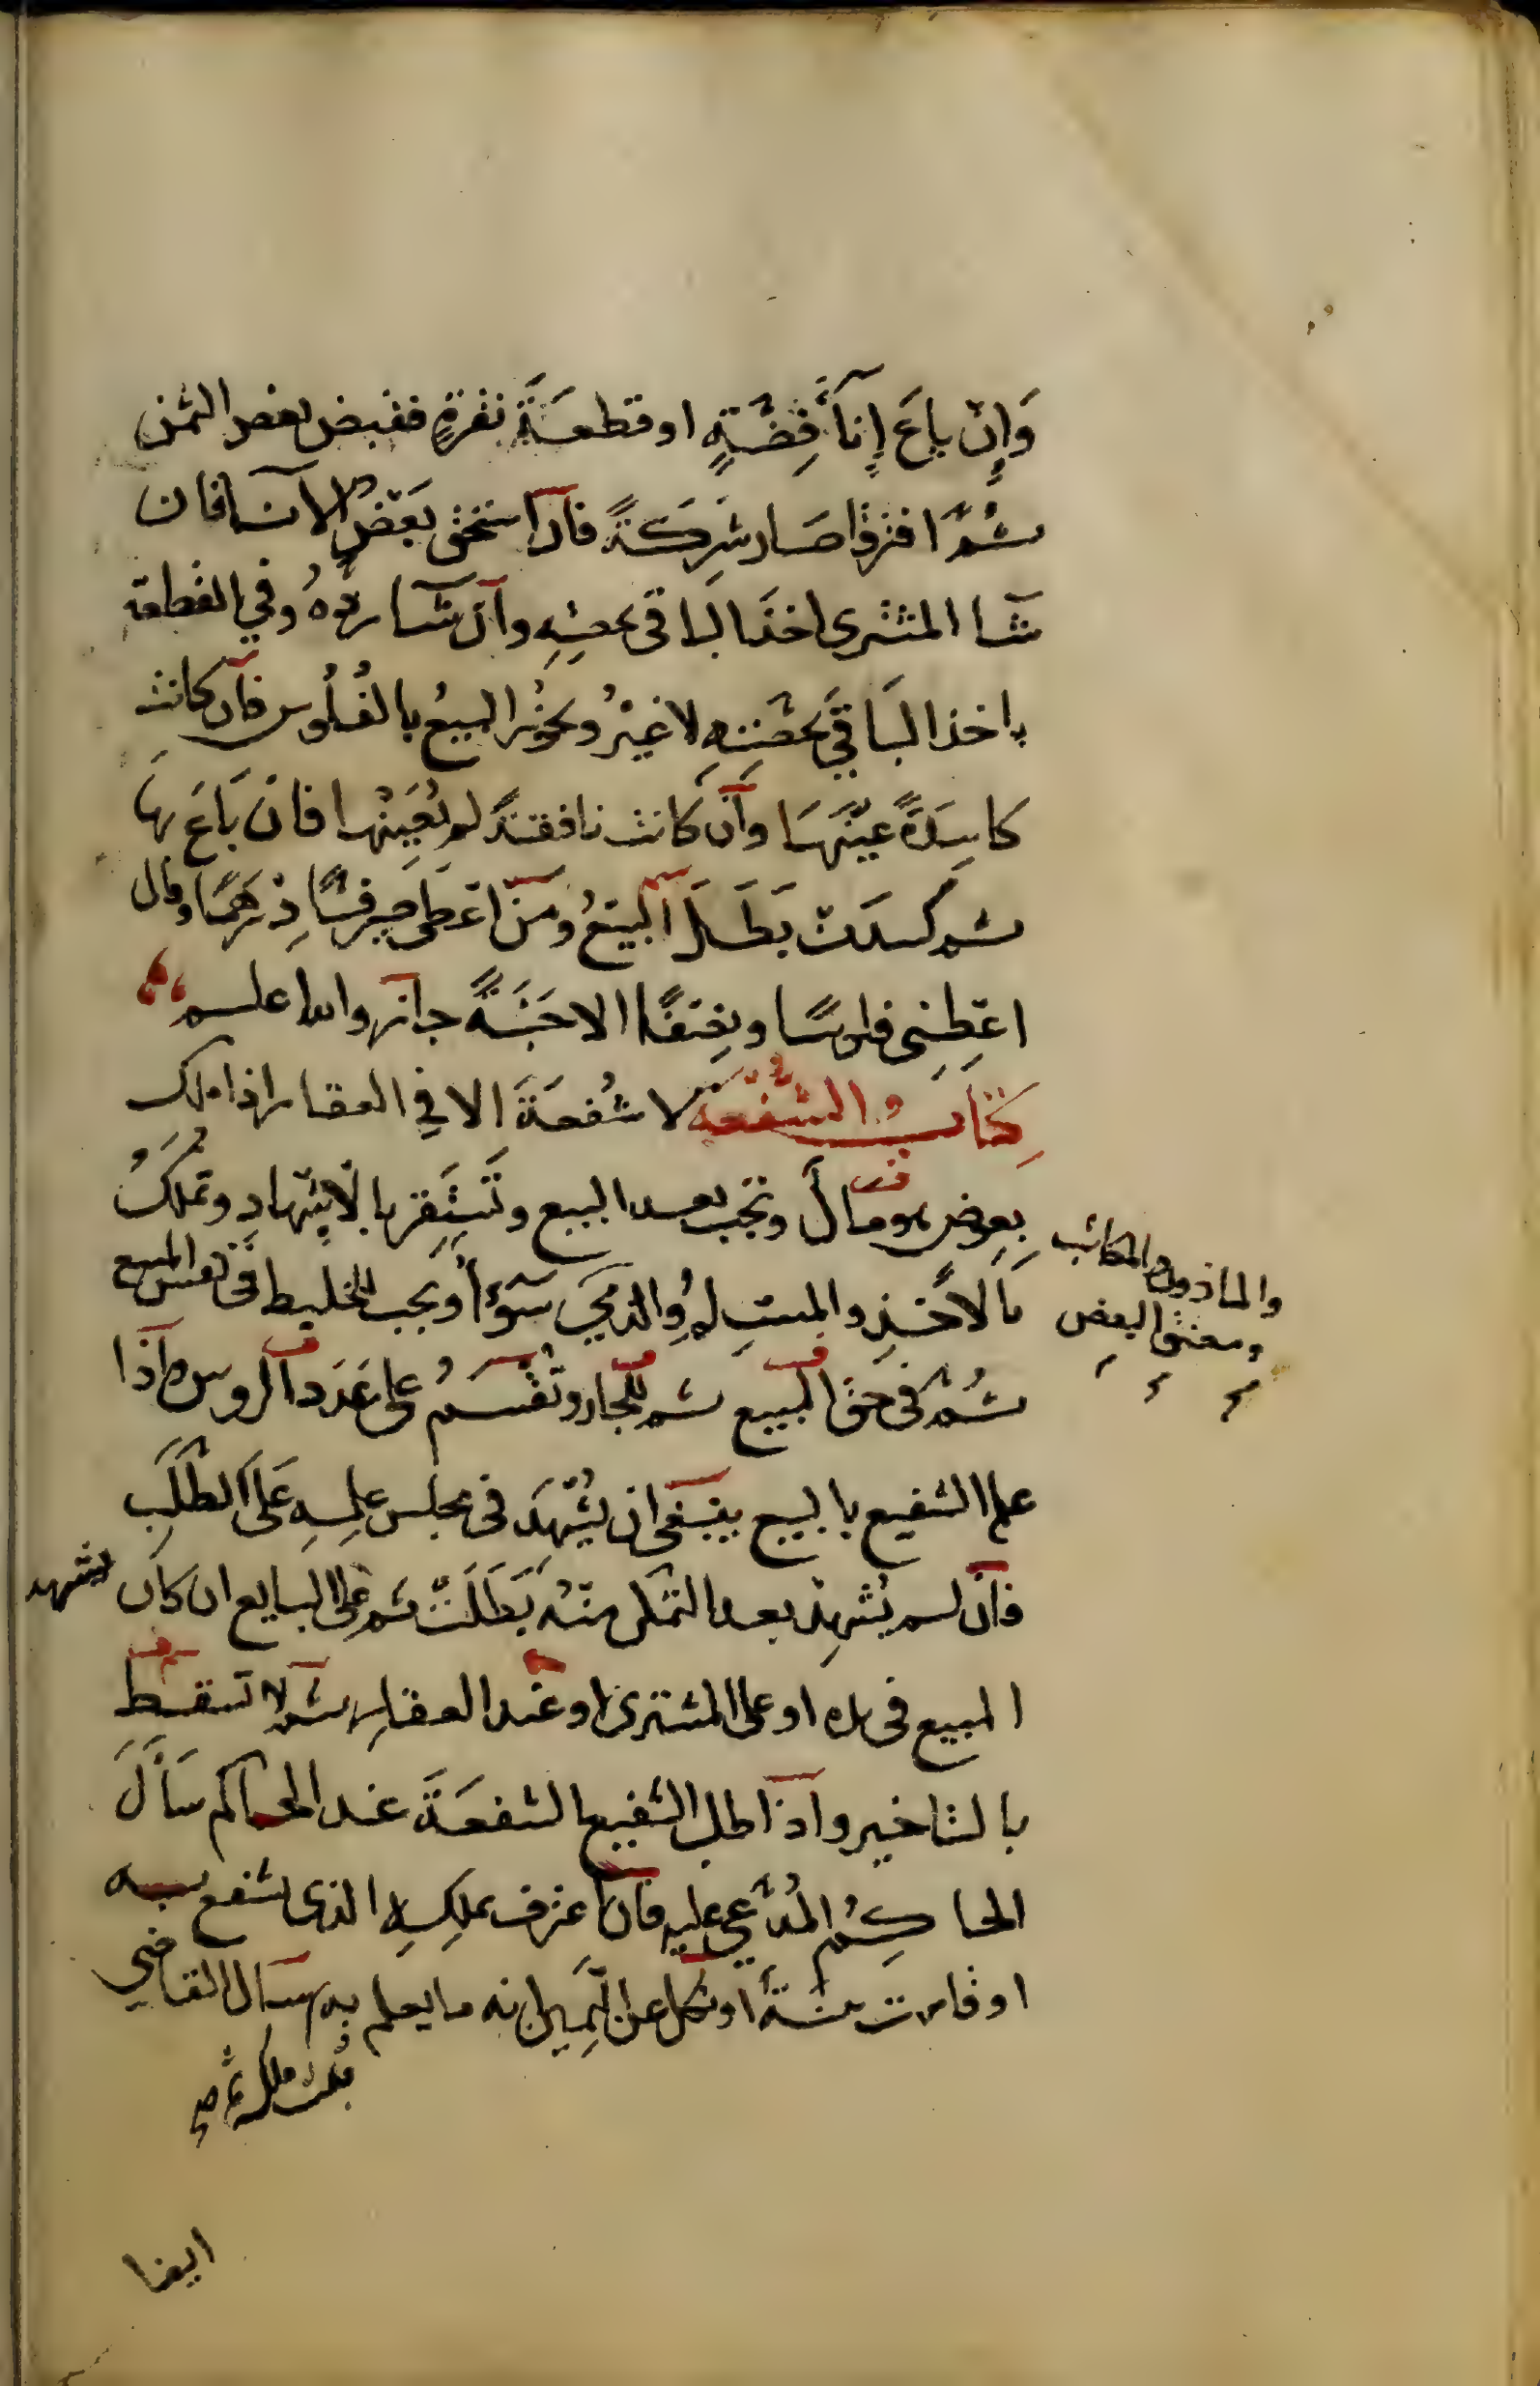 وَإِنْ باعَ إِنآءَ فِضَّةٍ او قطعَةَ نقرةٍ فقبض بعض الثمن
ثُمَّ افترقا صَار شِركَةً فان استحق بَعْضُ الانآ فان
شآ المشترى اخذ الباقى بحصتِهِ وان شآ ردّهُ وفي القطعة
ياخذ البَاقيَ بحصّتِهِ لا غيرُ ويجوزُ البيعُ بالفُلُوس فان كانت
كاسِدَةً عيّنَهَا وان كانت نافقةً لم يُعَيِّنْها فان بَاعَ بهَا
ثم كسدَتْ بَطَلَ البيعُ ومَنْ اعْطى صيرفيًّا دِرْهَمًا وقال
اعْطِنِى فلوسًا ونِصفًا الا حَبَّةً جاز والله اعلم
كِتَابُ الشُّفْعَةِ لا شُفعَةَ الا فى العقار اذا ملك
بِعِوضٍ هو مالٌ وتجب بعد البيع وتَسْتَقِرّ بالاشهادِ وتملكُ
بالاخْذِ والمسلِمُ والذميّ سَوَآءٌ وتجب للخليط فى نفس المبيع
ثُمّ فى حق المبيع ثم للجار وتُقْسَمُ على عَدَد الروس واذا
علم الشفيع بالبيع ينبغى ان يُشْهِدَ فى مجلس علمِهِ عَلى الطَلَبِ
فان لم يُشْهِدْ بعد التمكن منْهُ بَطَلَتْ ثم على البايع ان كان
المبيع فى يده او على المشترى او عند العقارِ ثم لا تسقط
بالتاخير واذا طلب الشفيع الشفعَةَ عند الحاكم سَأَلَ
الحاكِمُ المُدَّعى عليهِ فان اعترف بملكِهِ الذى يشفع به
او قامت بينةٌ او نكل عن اليَمينِ انه ما يعلم به سال القاضى
والماذون والمكاتب
ومعتق البعض
ليشهد
ايضا